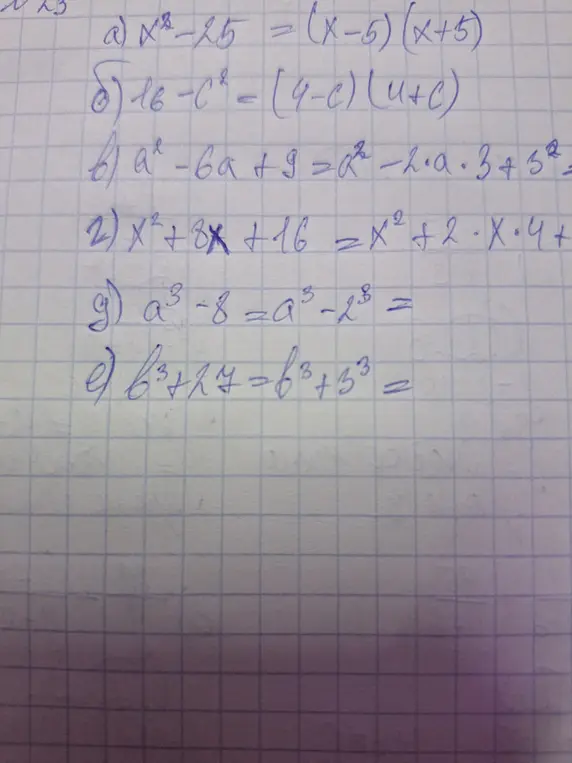 №23
а) x² - 25 = (x-5)(x+5)
б) 16 - c² = (4-c)(4+c)
в) a² - 6a + 9 = a² - 2·a·3 + 3² =
г) x² + 8x + 16 = x² + 2·x·4 +
д) a³ - 8 = a³ - 2³ =
е) b³ + 27 = b³ + 3³ =